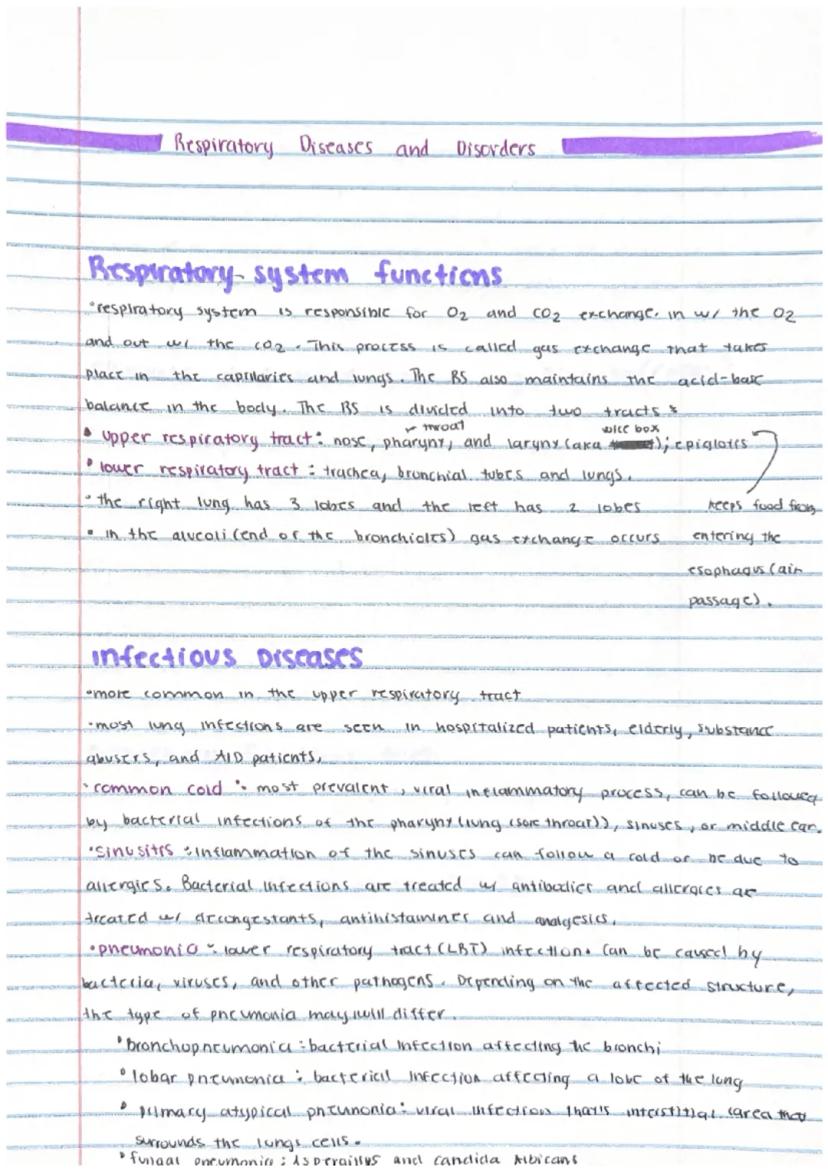 Respiratory Diseases and Disorders
Respiratory system functions
•respiratory system is responsible for O2 and CO2 exchange. in w/ the O2
and out w/ the CO2. This process is called gas exchange that takes
place in the capilaries and lungs. The RS also maintains the acid-base
balance in the body. The RS is divided into two tracts:
throat
voice box
• upper respiratory tract: nose, pharynx, and larynx (aka ); epiglottis
• lower respiratory tract: trachea, bronchial tubes and lungs.
• the right lung has 3 lobes and the left has 2 lobes
keeps food from
• in the alveoli (end of the bronchioles) gas exchange occurs
entering the
esophagus (air
passage).
Infectious Diseases
•more common in the upper respiratory tract
•most lung infections are seen in hospitalized patients, elderly, substance
abusers, and AID patients.
•common cold: most prevalent, viral inflammatory process, can be followed
by bacterial infections of the pharynx (lung (sore throat)), sinuses, or middle ear.
•sinusitis: inflammation of the sinuses can follow a cold or be due to
allergies. Bacterial infections are treated w/ antibodies and allergies are
treated w/ decongestants, antihistamines and analgesics.
•pneumonia: lower respiratory tract (LRT) infection. Can be caused by
bacteria, viruses, and other pathogens. Depending on the affected structure,
the type of pneumonia may/will differ.
• bronchopneumonia: bacterial infection affecting the bronchi
• lobar pneumonia: bacterial infection affecting a lobe of the lung
• primary atypical pneumonia: viral infection that's interstitial (area that
surrounds the lungs cells.
• fungal pneumonia: Aspergillus and candida Albicans